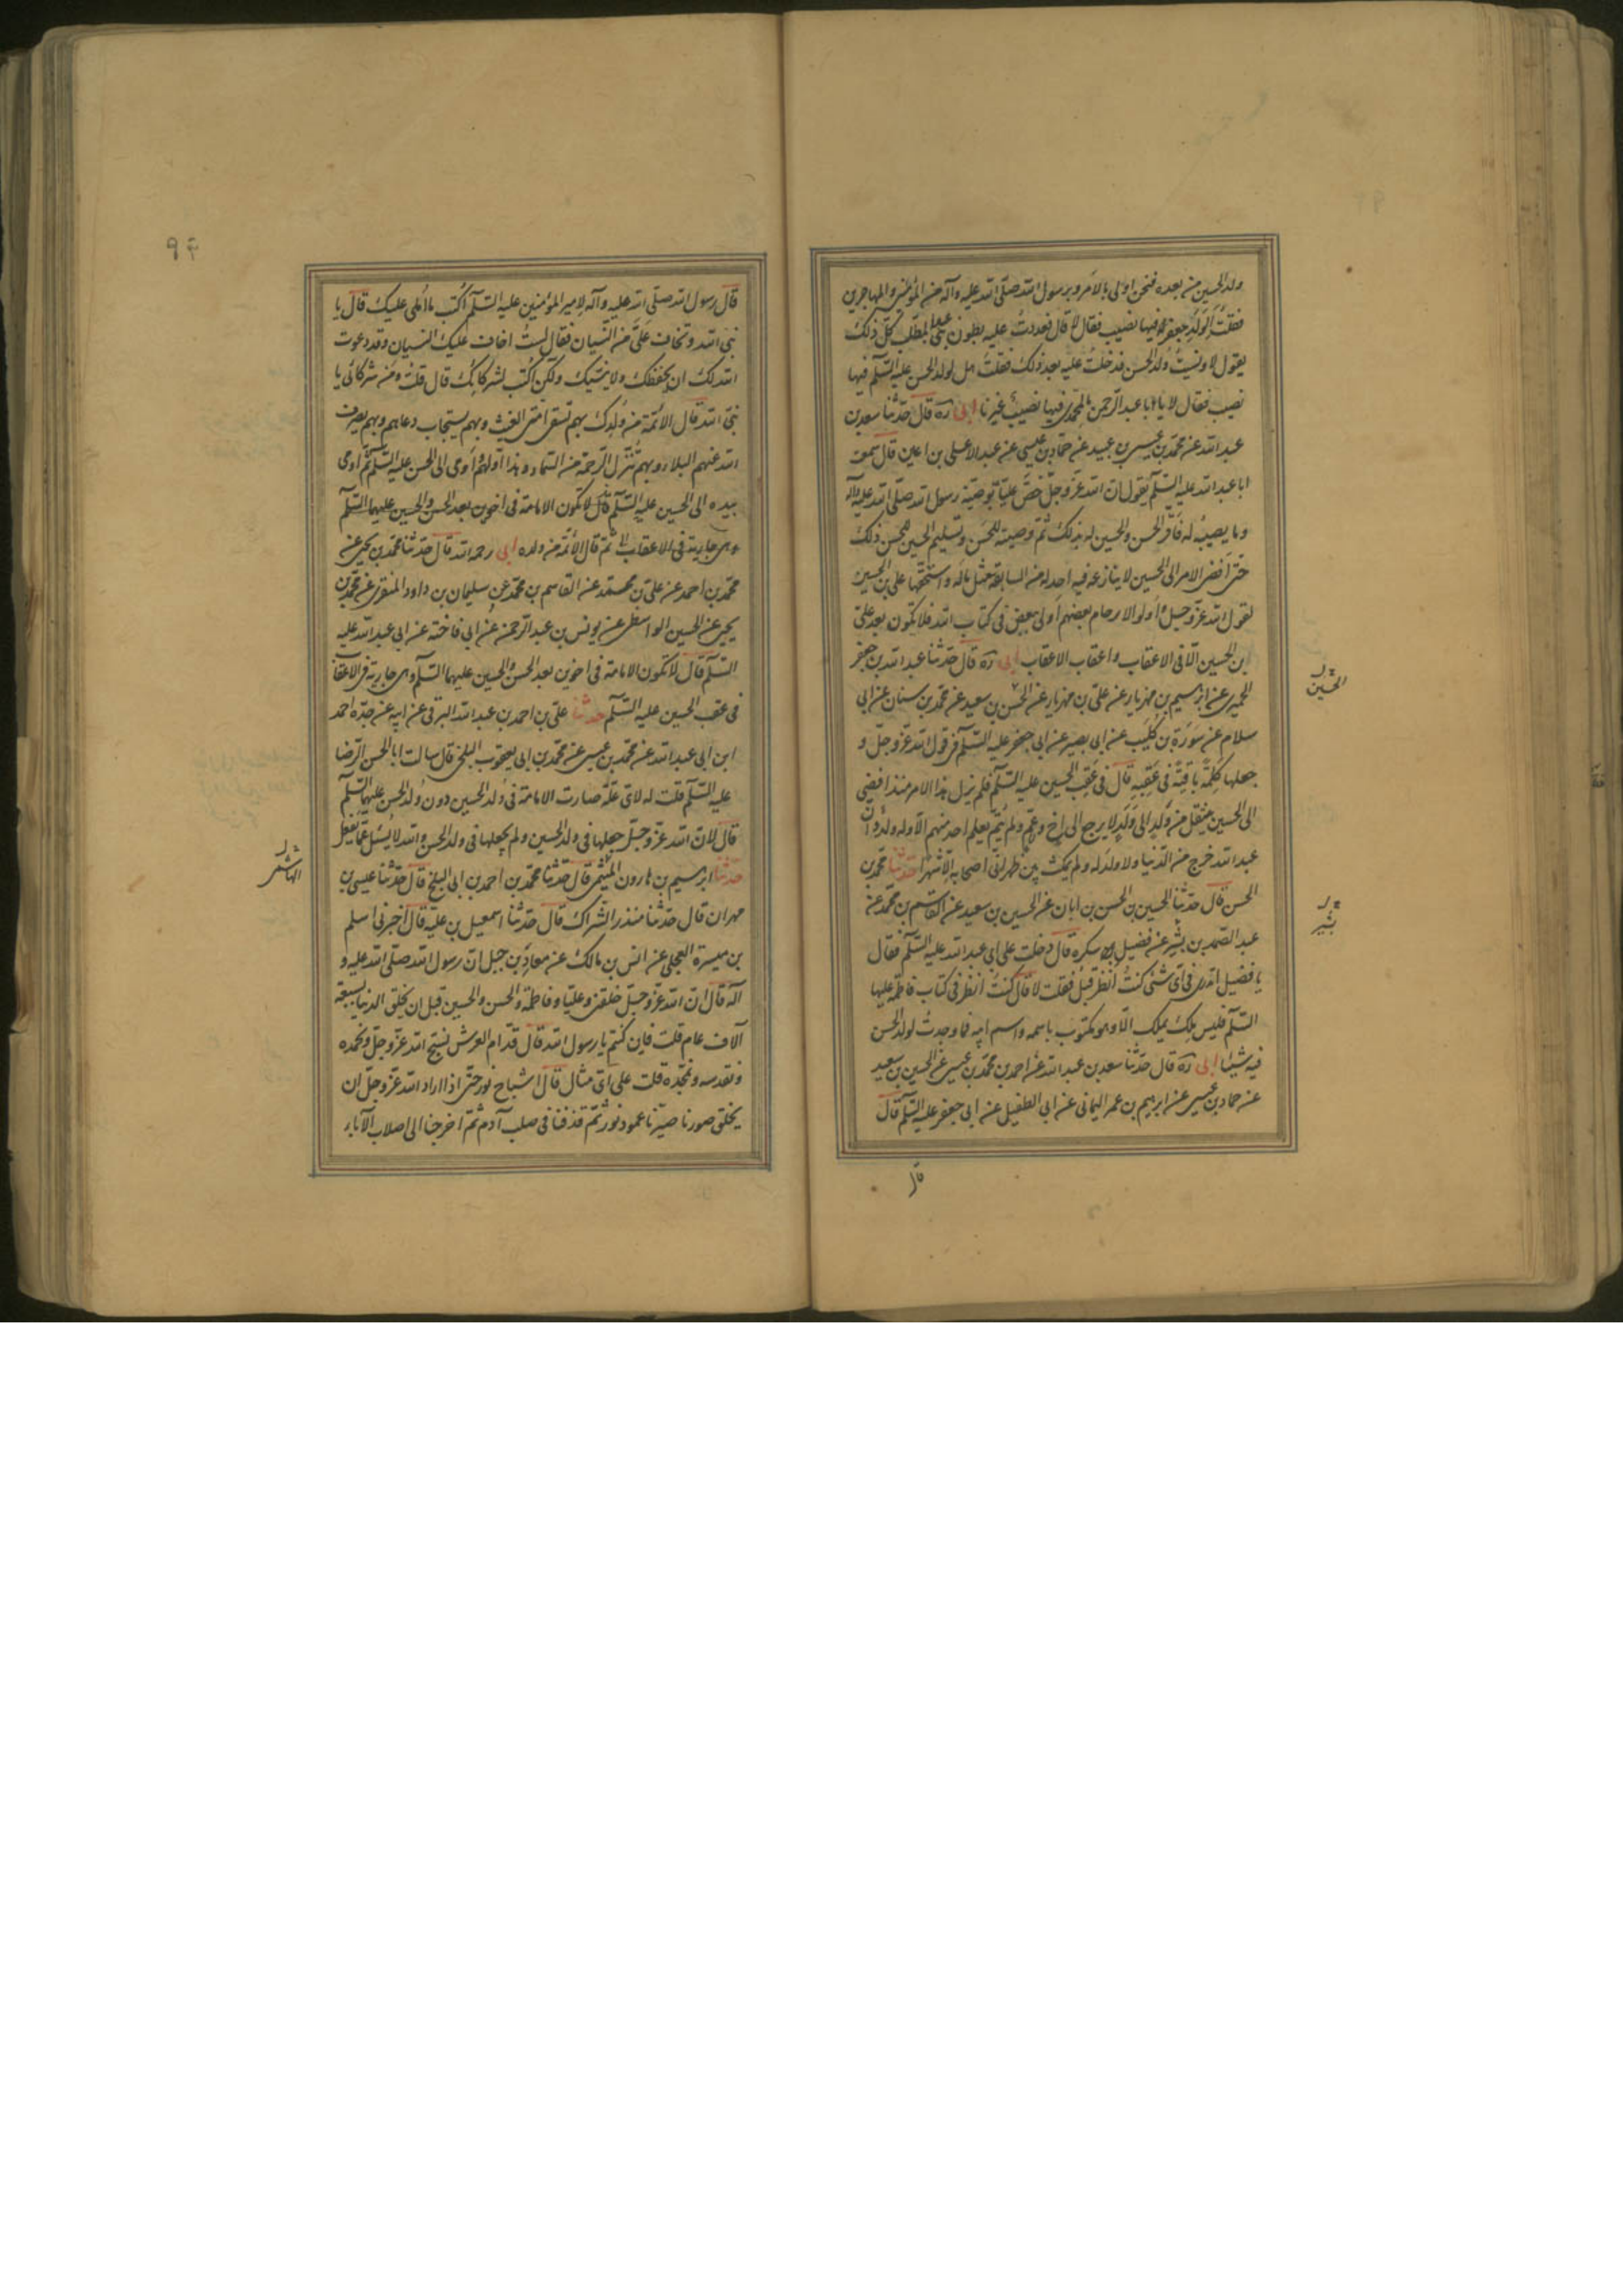 ولد الحسين من بعده فنحن اولى بالامر وبرسول الله صلى الله عليه وآله من المؤمنين والمهاجرين
فقلت ألولد جعفر فيها نصيب فقال لا قال فعددت عليه بطون بنى عبد المطلب كل ذلك
يقول لا ونسيت ولد الحسن فدخلت عليه بعد ذلك فقلت هل لولد الحسن عليه السلم فيها
نصيب فقال لا يا ابا عبد الرحمن ما لمحمدى فيها نصيب غيرنا ابى ره قال حدثنا سعد بن
عبد الله عن محمد بن عيسى بن عبيد عن حماد بن عيسى عن عبد الاعلى بن اعين قال سمعت
ابا عبد الله عليه السلم يقول ان الله عز وجل خص عليا بوصية رسول الله صلى الله عليه وآله
وما يصيبه له فأقر الحسن والحسين له بذلك ثم وصيته للحسن وتسليم الحسين للحسن ذلك
حتى افضى الامر الى الحسين لا ينازعه فيه احد له من السابقة مثل ماله واستحقها على بن الحسين
لقول الله عز وجل واولو الارحام بعضهم اولى ببعض فى كتاب الله فلا تكون بعد على
بن الحسين الا فى الاعقاب واعقاب الاعقاب ابى ره قال حدثنا عبد الله بن جعفر
الحميرى عن ابرهيم بن مهزيار عن على بن مهزيار عن الحسن بن سعيد عن محمد بن سنان عن ابى
الحسين
سلام عن سورة بن كليب عن ابى بصير عن ابى جعفر عليه السلم فى قول الله عز وجل و
جعلها كلمة باقية فى عقبه قال فى عقب الحسين عليه السلم فلم يزل هذا الامر منذ افضى
الى الحسين ينتقل من ولد الى ولد لا يرجع الى اخ وعم ولم يتم بعلم احد منهم الا وله ولد وان
عبد الله خرج من الدنيا ولا ولد له ولم يمكث بين ظهرانى اصحابه الا شهرا حدثنا محمد بن
الحسن قال حدثنا الحسين بن الحسن بن ابان عن الحسين بن سعيد عن القاسم بن محمد عن
بشير
عبد الصمد بن بشير عن فضيل سكره قال دخلت على ابى عبد الله عليه السلم فقال
يا فضيل اتدرى فى اى شئ كنت انظر قبل فقلت لا قال كنت انظر فى كتاب فاطمة عليها
السلم فليس ملك يملك الا وهو مكتوب باسمه واسم ابيه فما وجدت لولد الحسن
فيه شيئا ابى ره قال حدثنا سعد بن عبد الله عن احمد بن محمد بن عيسى عن الحسين بن سعيد
عن حماد بن عيسى عن ابرهيم بن عمر اليمانى عن ابى الطفيل عن ابى جعفر عليه السلم قال
قال
٩۴
قال رسول الله صلى الله عليه وآله لامير المؤمنين عليه السلم اكتب ما املى عليك قال يا
نبى الله وتخاف على من النسيان فقال لست اخاف عليك النسيان وقد دعوت
الله لك ان يحفظك ولا ينسيك ولكن اكتب لشركائك قال قلت ومن شركائى يا
نبى الله قال الائمة من ولدك بهم تسقى امتى الغيث وبهم يستجاب دعاهم وبهم يصرف
الله عنهم البلاء وبهم تنزل الرحمة من السماء وهذا اولهم واومى الى الحسن عليه السلم ثم اومى
بيده الى الحسين عليه السلم قال لا تكون الامامة فى اخوين بعد الحسن والحسين عليهما السلم
وهى جارية فى الاعقاب ثم قال الائمة من ولده ابى رحمه الله قال حدثنا محمد بن يحيى عن
محمد بن احمد عن على بن محمد عن القاسم بن محمد عن سليمان بن داود المنقرى عن محمد بن
يحيى عن الحسين الواسطى عن يونس بن عبد الرحمن عن ابى فاخته عن ابى عبد الله عليه
السلم قال لا تكون الامامة فى اخوين بعد الحسن والحسين عليهما السلم وهى جارية فى الاعقاب
فى عقب الحسين عليه السلم حدثنا على بن احمد بن عبد الله البرقى عن ابيه عن جده احمد
ابن ابى عبد الله عن محمد بن عيسى عن محمد بن ابى يعقوب البلخى قال سالت ابا الحسن الرضا
عليه السلم قلت له لاى علة صارت الامامة فى ولد الحسين دون ولد الحسن عليهما السلم
قال لان الله عز وجل جعلها فى ولد الحسين ولم يجعلها فى ولد الحسن والله لا يسئل عما يفعل
حدثنا ابرهيم بن هارون الهيثمى قال حدثنا محمد بن احمد بن ابى البلخ قال حدثنا عيسى بن
الهاشمى
مهران قال حدثنا منذر الشراك قال حدثنا اسمعيل بن علية قال اخبرنى اسلم
بن ميسرة العجلى عن انس بن مالك عن معاذ بن جبل ان رسول الله صلى الله عليه و
آله قال ان الله عز وجل خلقنى وعليا وفاطمة والحسن والحسين قبل ان يخلق الدنيا بسبعة
آلاف عام قلت فاين كنتم يا رسول الله قال قدام العرش نسبح الله عز وجل ونحمده
ونقدسه ونمجده قلت على اى مثال قال اشباح نور حتى اذا اراد الله عز وجل ان
يخلق صورنا صيرنا عمود نور ثم قذفنا فى صلب آدم ثم اخرجنا الى اصلاب الآباء